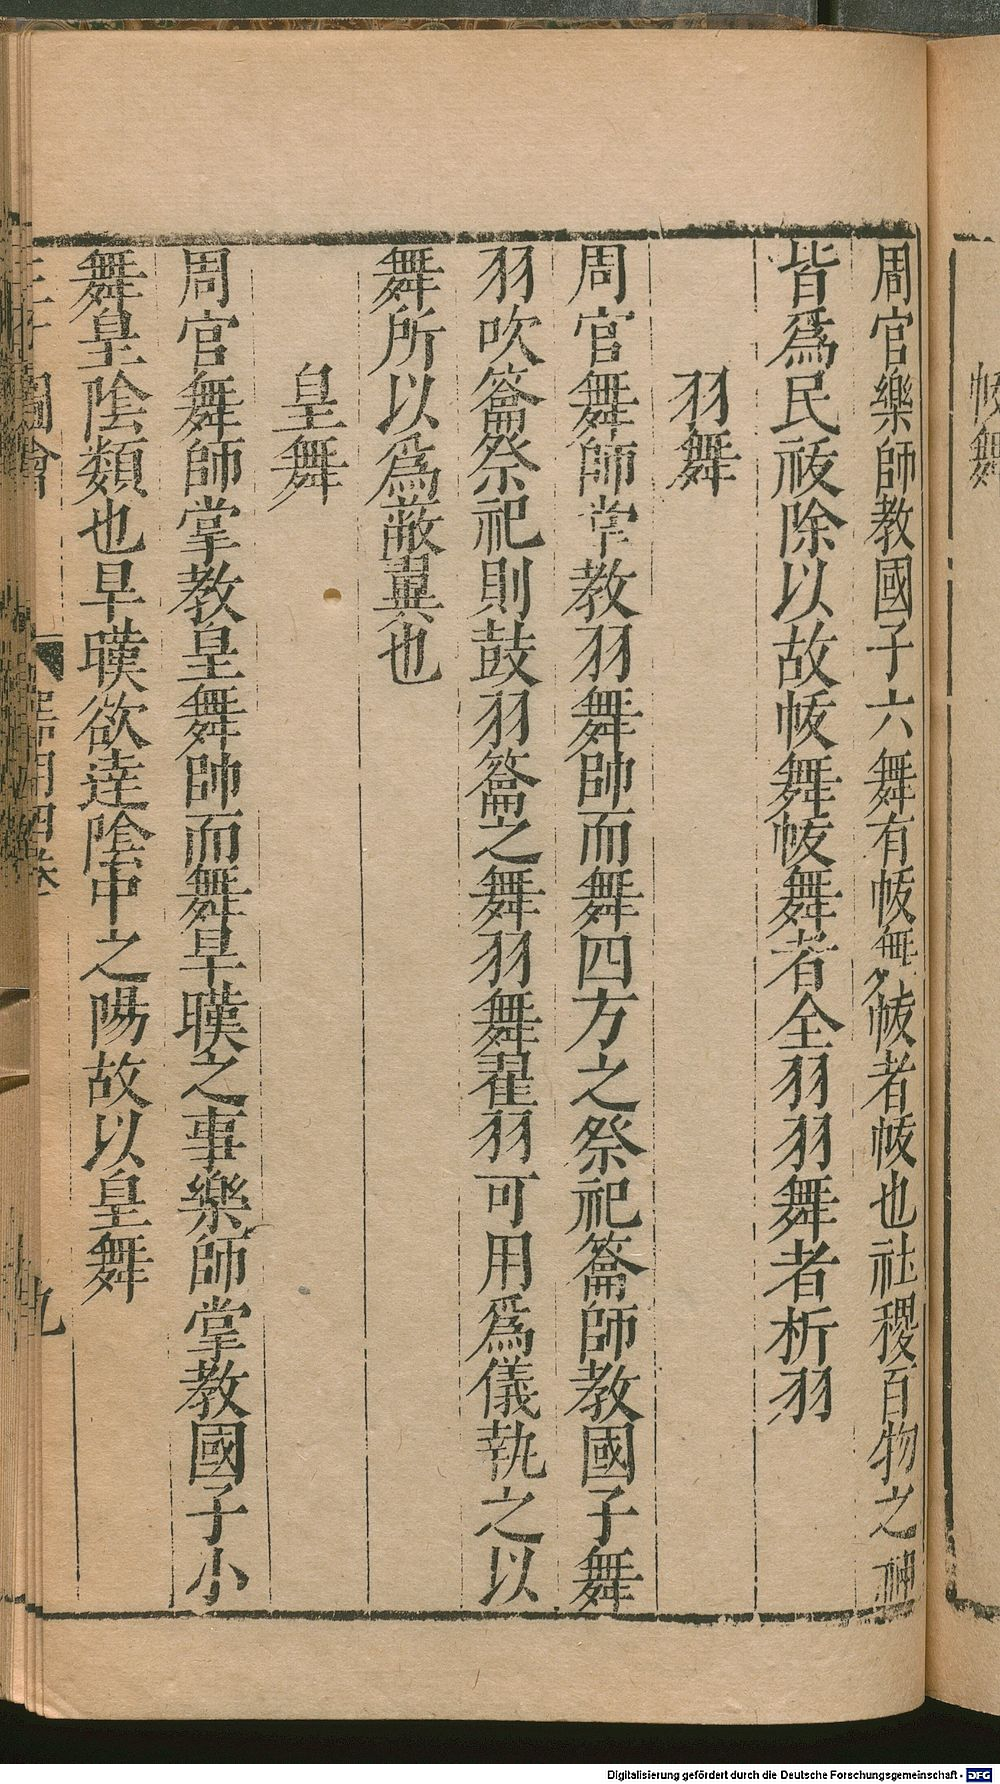 帗舞
周官樂師教國子六舞有帗舞帗者帗也社稷百物之神
皆爲民祓除以故帗舞帗舞者全羽羽舞者析羽
羽舞
周官舞師掌教羽舞帥而舞四方之祭祀籥師教國子舞
羽吹籥祭祀則鼓羽籥之舞羽舞翟羽可用爲儀執之以
舞所以爲蔽翼也
皇舞
周官舞師掌教皇舞帥而舞旱暵之事樂師掌教國子小
舞皇陰類也旱暵欲達陰中之陽故以皇舞
圖會
器用四卷
九
Digitalisierung gefördert durch die Deutsche Forschungsgemeinschaft - DFG